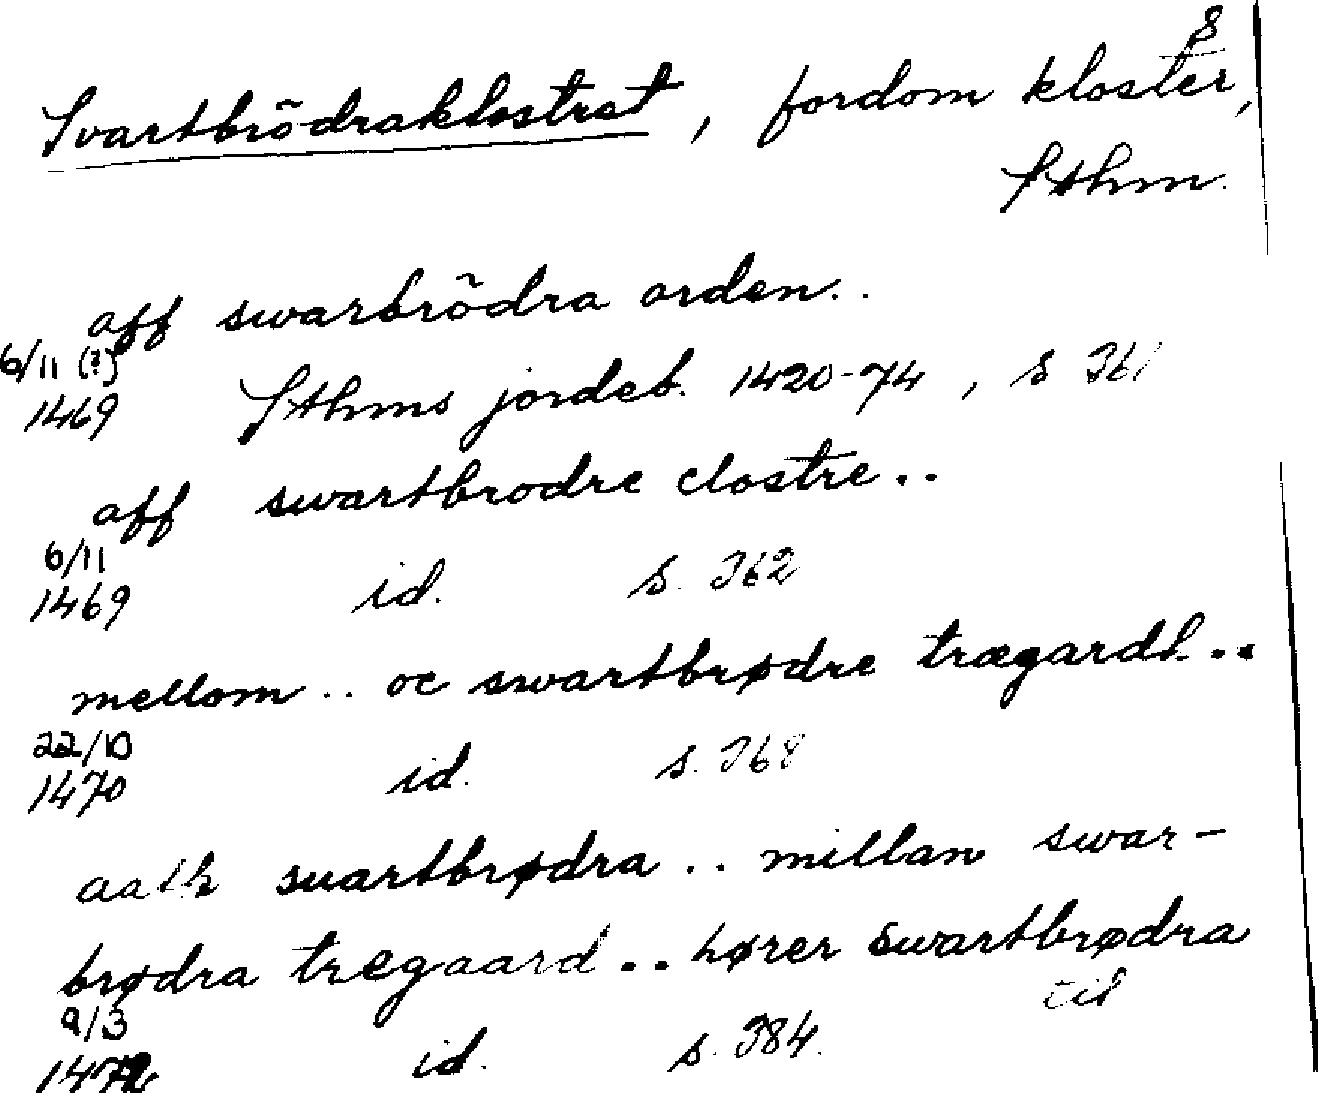 8
Svartbrödraklostret, fordom kloster,
Sthm.
aff swarbrödra orden..
6/11 (?)
1469 Sthms jordeb. 1420-74, s 361
aff swartbrodre clostre..
6/11
1469 id. s. 362
mellom .. oc swartbrødre trægardh..
22/10
1470 id. s. 368
aath swartbrødra .. millan swar-
brødra tregaard .. hører swartbrødra
til
9/3
id. s. 384.